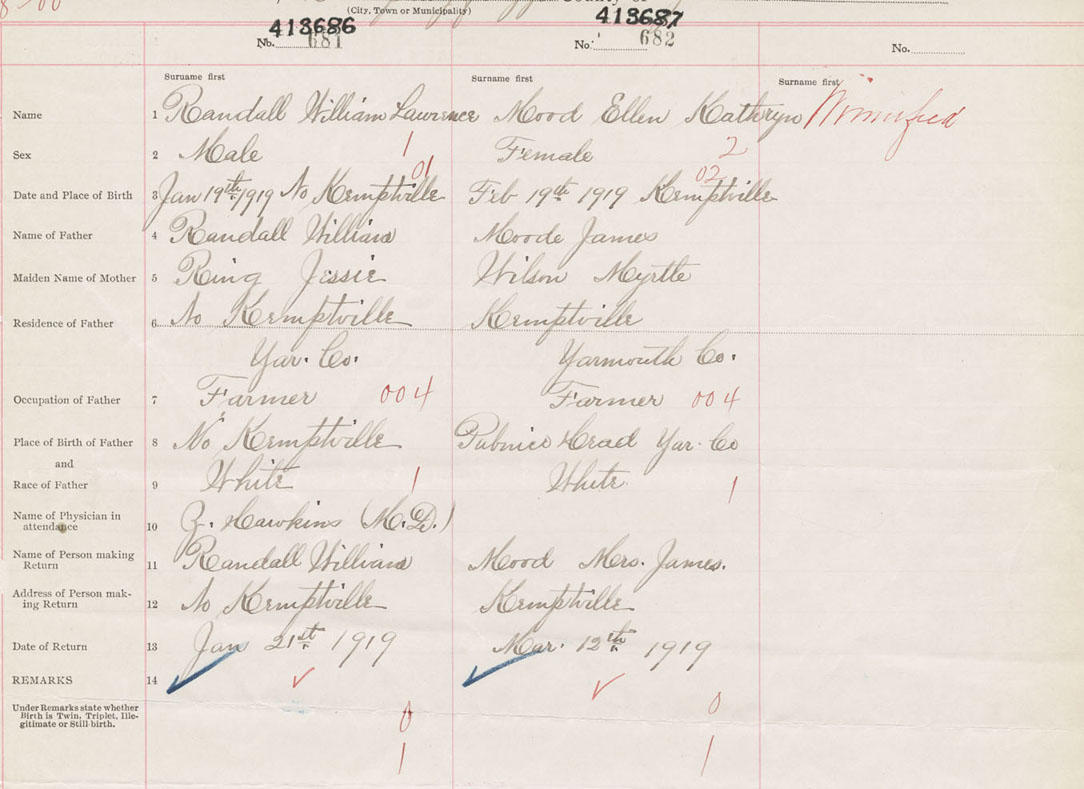 (City, Town or Municipality)
413686 413687
No. 681 No. 682 No.
Surname first Surname first Surname first
Name 1 Randall William Lawrence Mood Ellen Kathryn
Sex 2 Male 1 Female 2
01 02
Date and Place of Birth 3 Jan 19th 1919 No Kemptville Feb 19th 1919 Kemptville
Name of Father 4 Randall William Moode James
Maiden Name of Mother 5 Ring Jessie Wilson Myrtle
Residence of Father 6 No Kemptville Kemptville
Yar. Co. Yarmouth Co.
Occupation of Father 7 Farmer 004 Farmer 004
Place of Birth of Father 8 No Kemptville Pubnico Head Yar. Co
and
Race of Father 9 White 1 White 1
Name of Physician in
attendance 10 Z. Hawkins (M.D.)
Name of Person making
Return 11 Randall William Mood Mrs. James.
Address of Person mak-
ing Return 12 No Kemptville Kemptville
Date of Return 13 Jan 21st 1919 Mar. 12th 1919
REMARKS 14
Under Remarks state whether
Birth is Twin, Triplet, Ille-
gitimate or Still-birth.
0 0
1 1